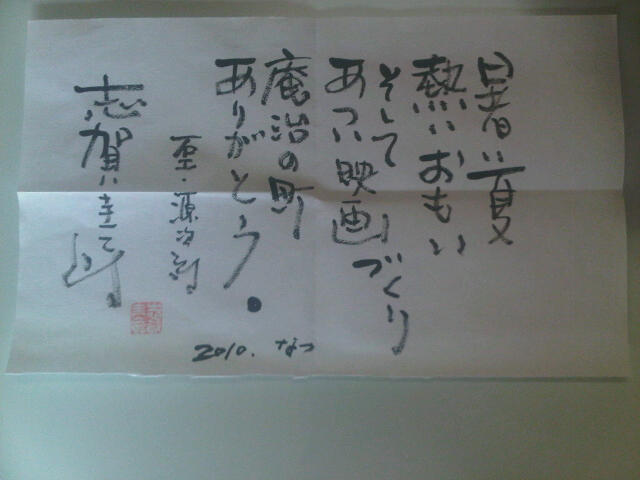 暑い夏
熱いおもい
そして
あつい映画づくり
庵治の町
ありがとう。
画・源次郎
志賀
2010. なつ